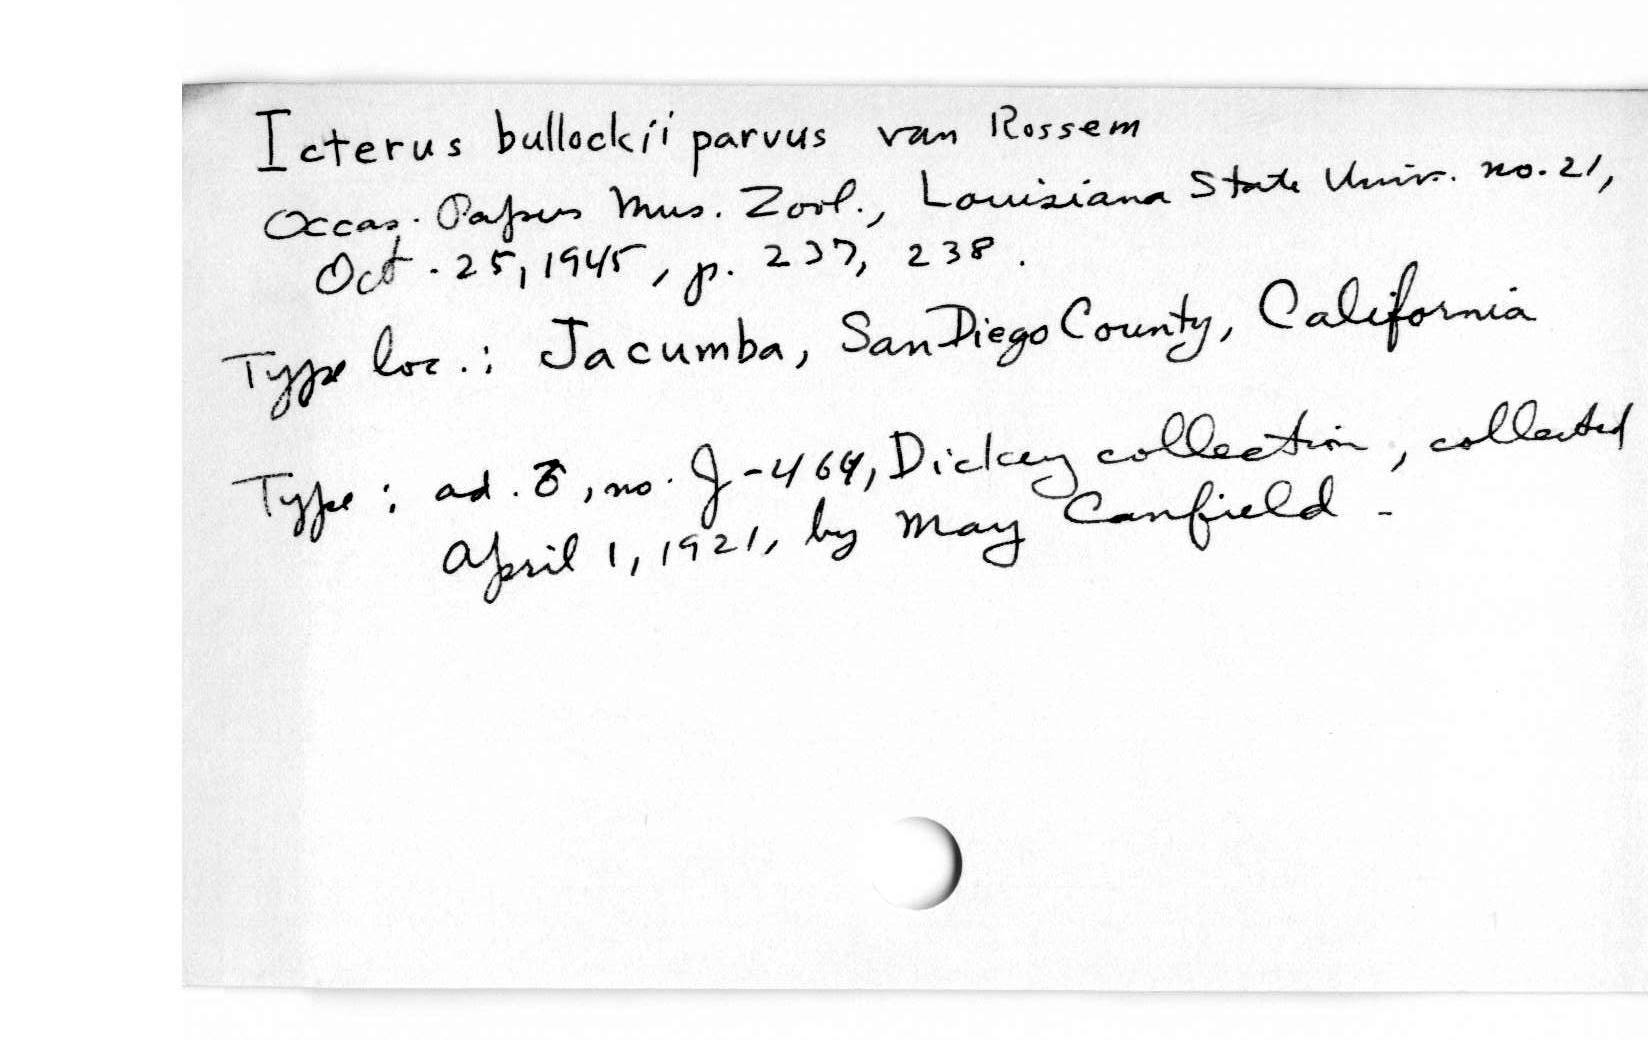 Icterus bullockii parvus van Rossem
Occas. Papers Mus. Zool., Louisiana State Univ. no. 21,
Oct. 25, 1945, p. 237, 238.
Type loc.: Jacumba, San Diego County, California
Type: ad. ♂, no. J-464, Dickey collection, collected
April 1, 1921, by May Canfield -